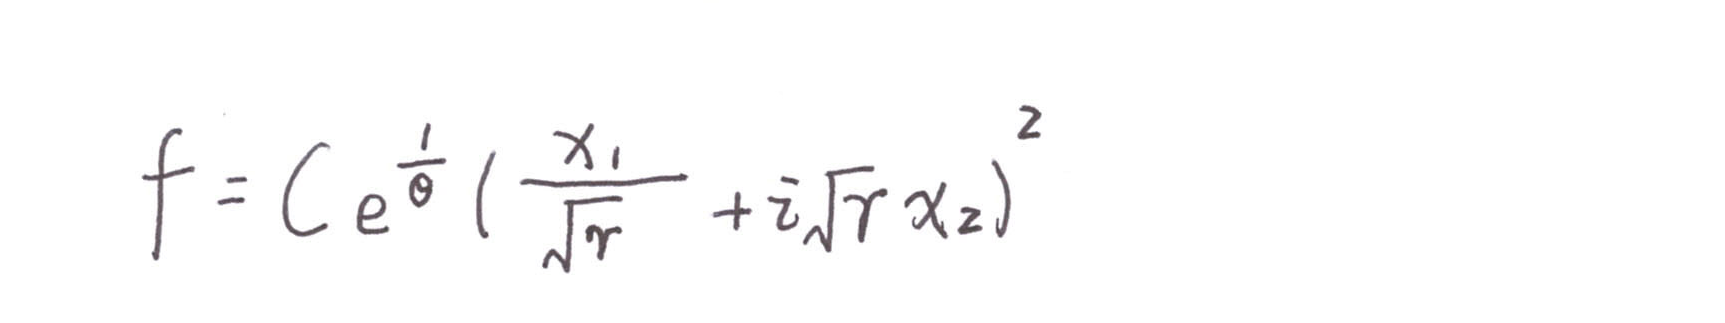 f = C e^{\frac{1}{\theta}} ( \frac{x_1}{\sqrt{r}} + i \sqrt{r} x_2 )^2